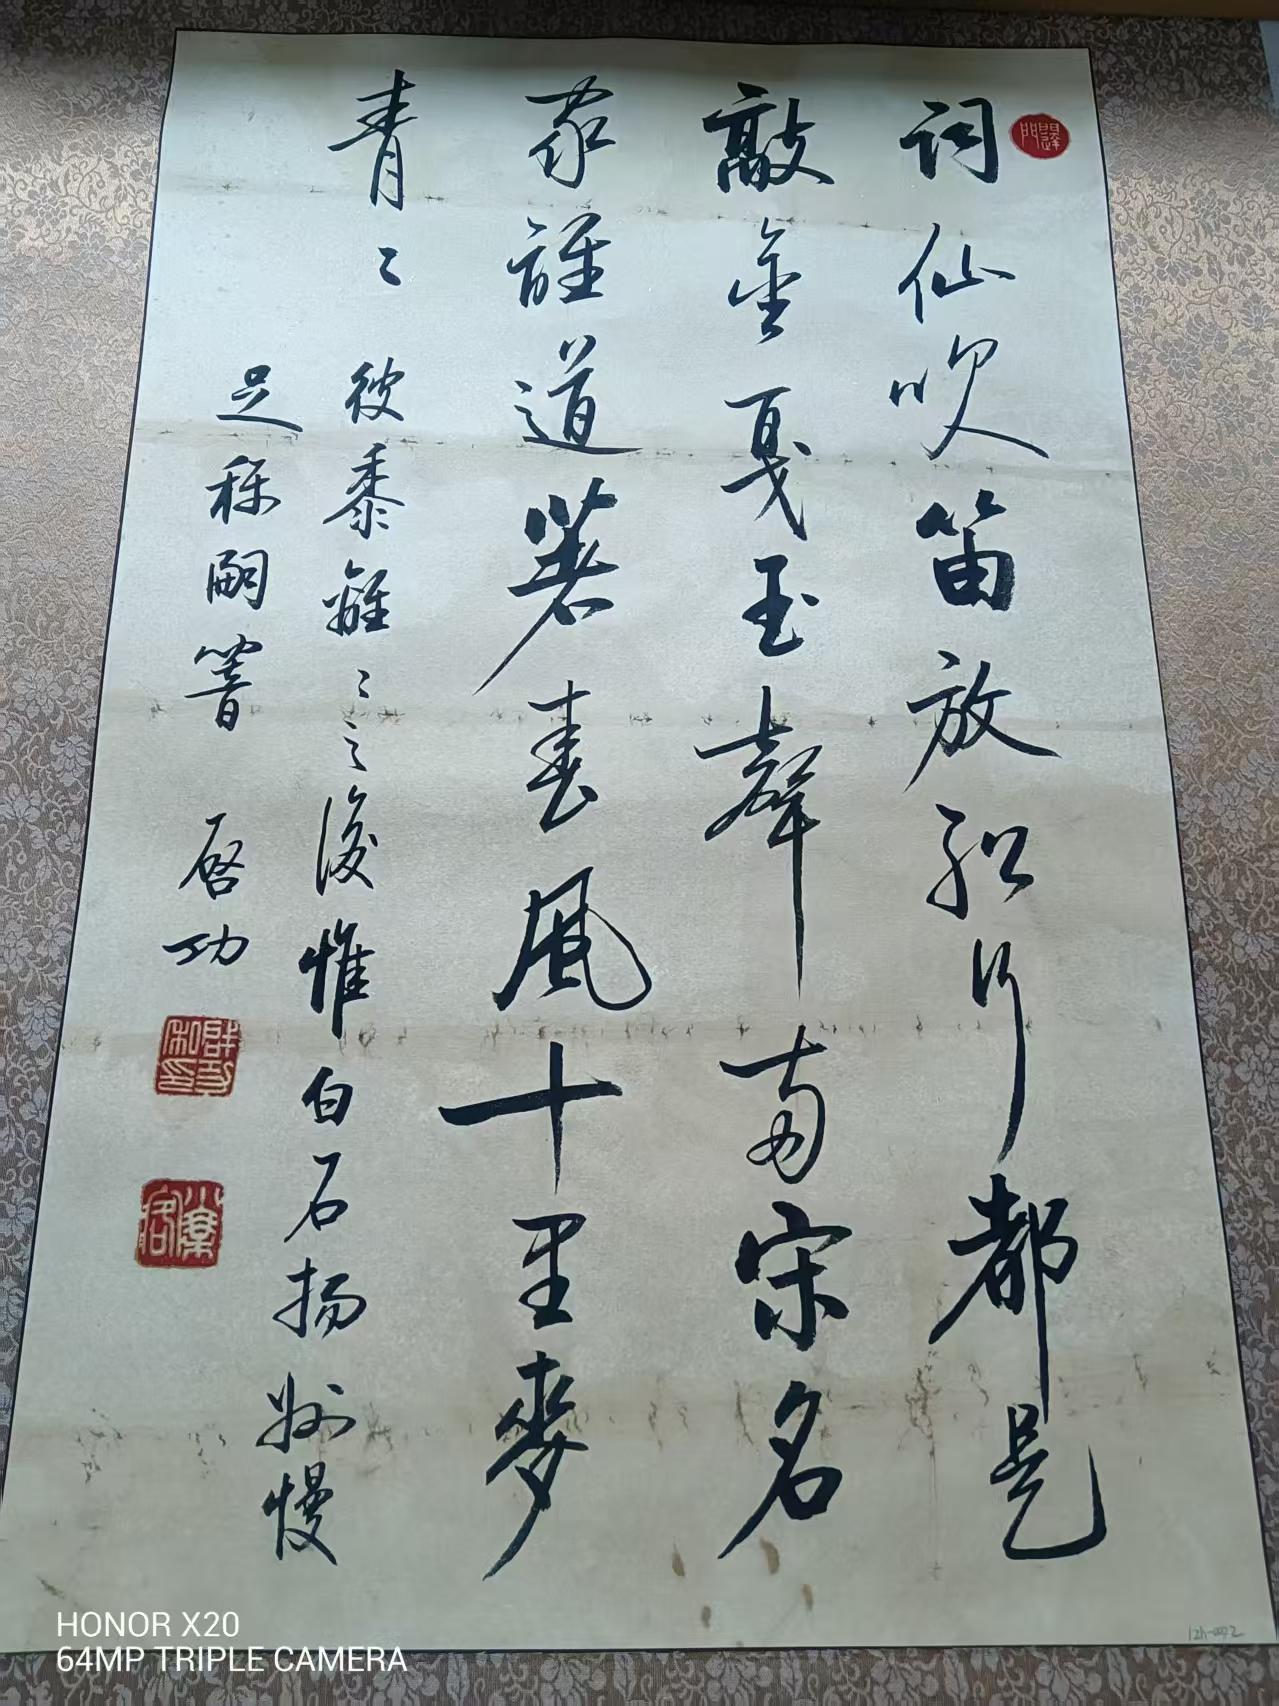 词仙吹笛放船行都是
敲金戛玉聲南宋名
家誰道著春風十里麥
青〻彼黍離〻之後惟白石揚州慢
足稱嗣響 啓功
HONOR X20
64MP TRIPLE CAMERA